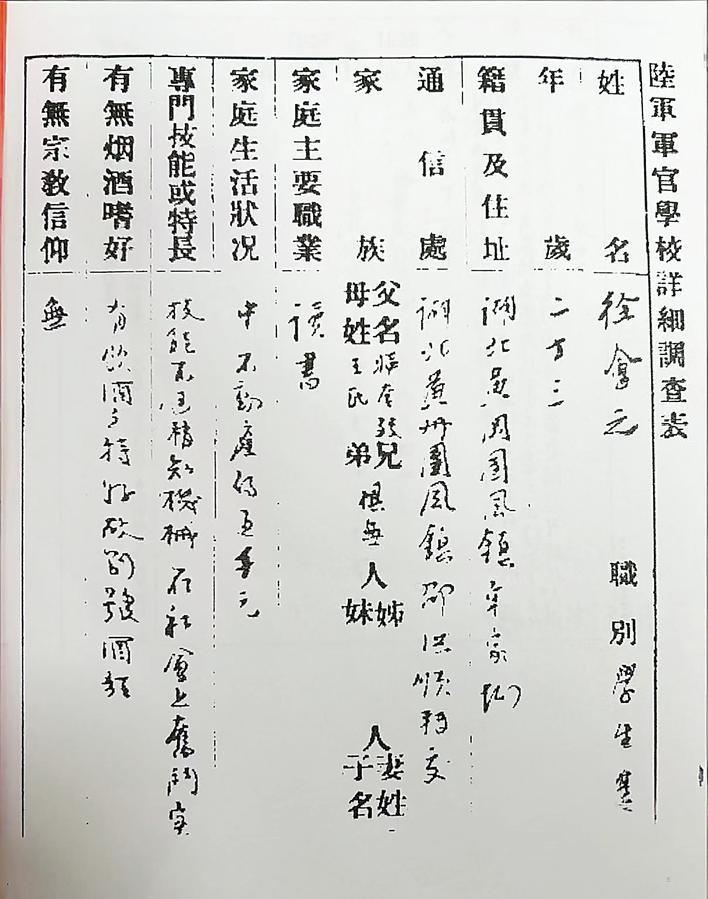 陸軍軍官學校詳細調查表
姓名 徐會之 職別 學生
年歲 二十三
籍貫及住址 湖北黃岡團風鎮
通信處 湖北黃州團風鎮 洪順轉交
家族 父名 母姓 王氏 兄弟 俱無 人 姊妹 人 妻姓 子名
家庭主要職業 讀書
家庭生活狀况 中不動產約 元
專門技能或特長 技能不 精知機械 在社會上奮鬥
有無烟酒嗜好 有飲酒之特好故別號酒
有無宗教信仰 無